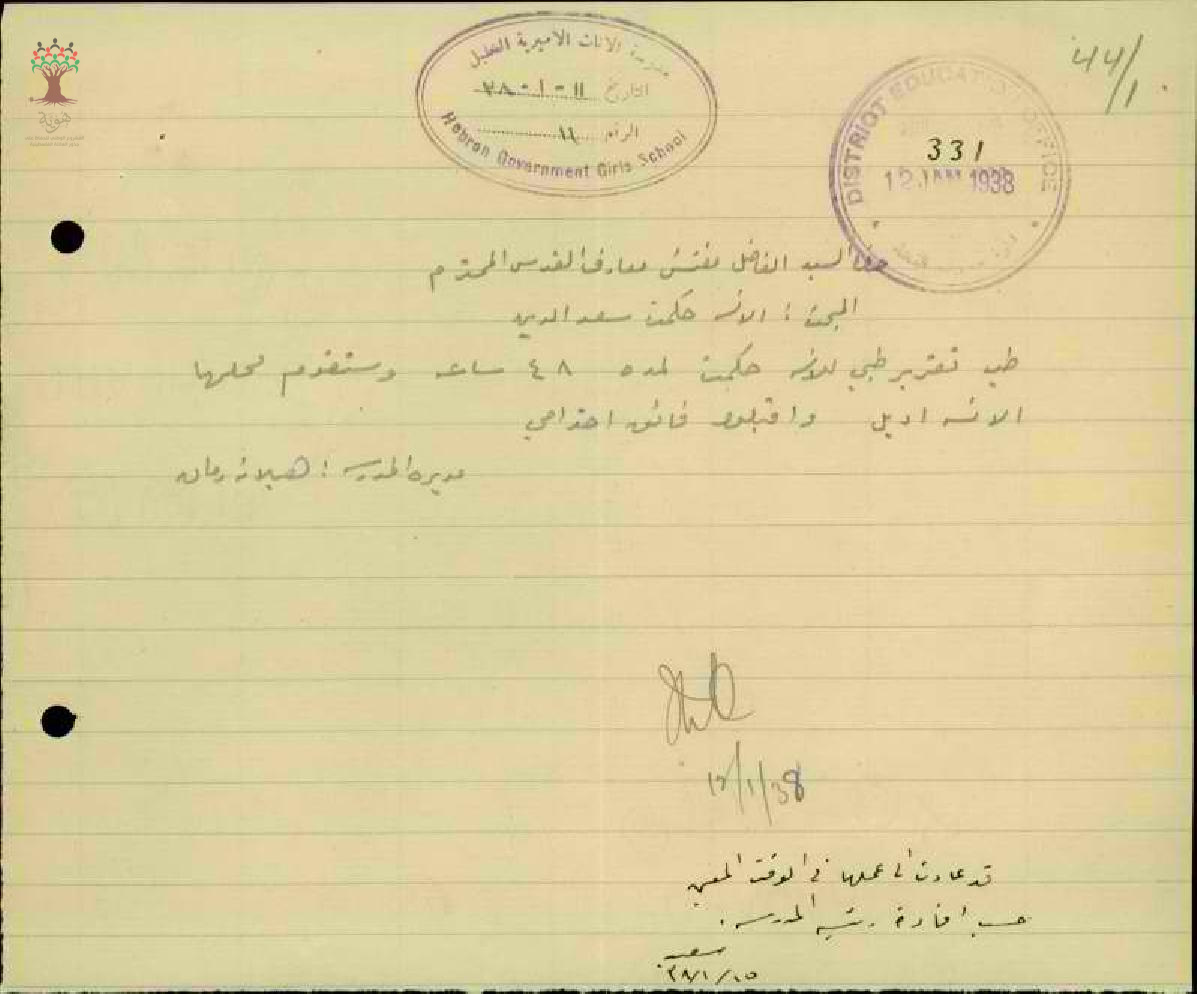 مدرسة الاناث الاميرية الخليل
التاريخ ١١ - ١ - ٣٨
الرقم ١١
Hebron Government Girls School
٤٤/١
DISTRICT EDUCATION OFFICE
331
12 JAN 1938
هوية
السيد الفاضل مفتش معارف القدس المحترم
المبحث : الانسه حكمت سعد الدين
طيه تقرير طبي للانسه حكمت لمده ٤٨ ساعه وستقوم محلها
الانسه اديل واقبلوا فائق احترامي
مديرة المدرسه :
12/1/38
قد عادت الى عملها في الوقت المعين
حسب افادة رئيسة المدرسه .
٣٨/١/١٥